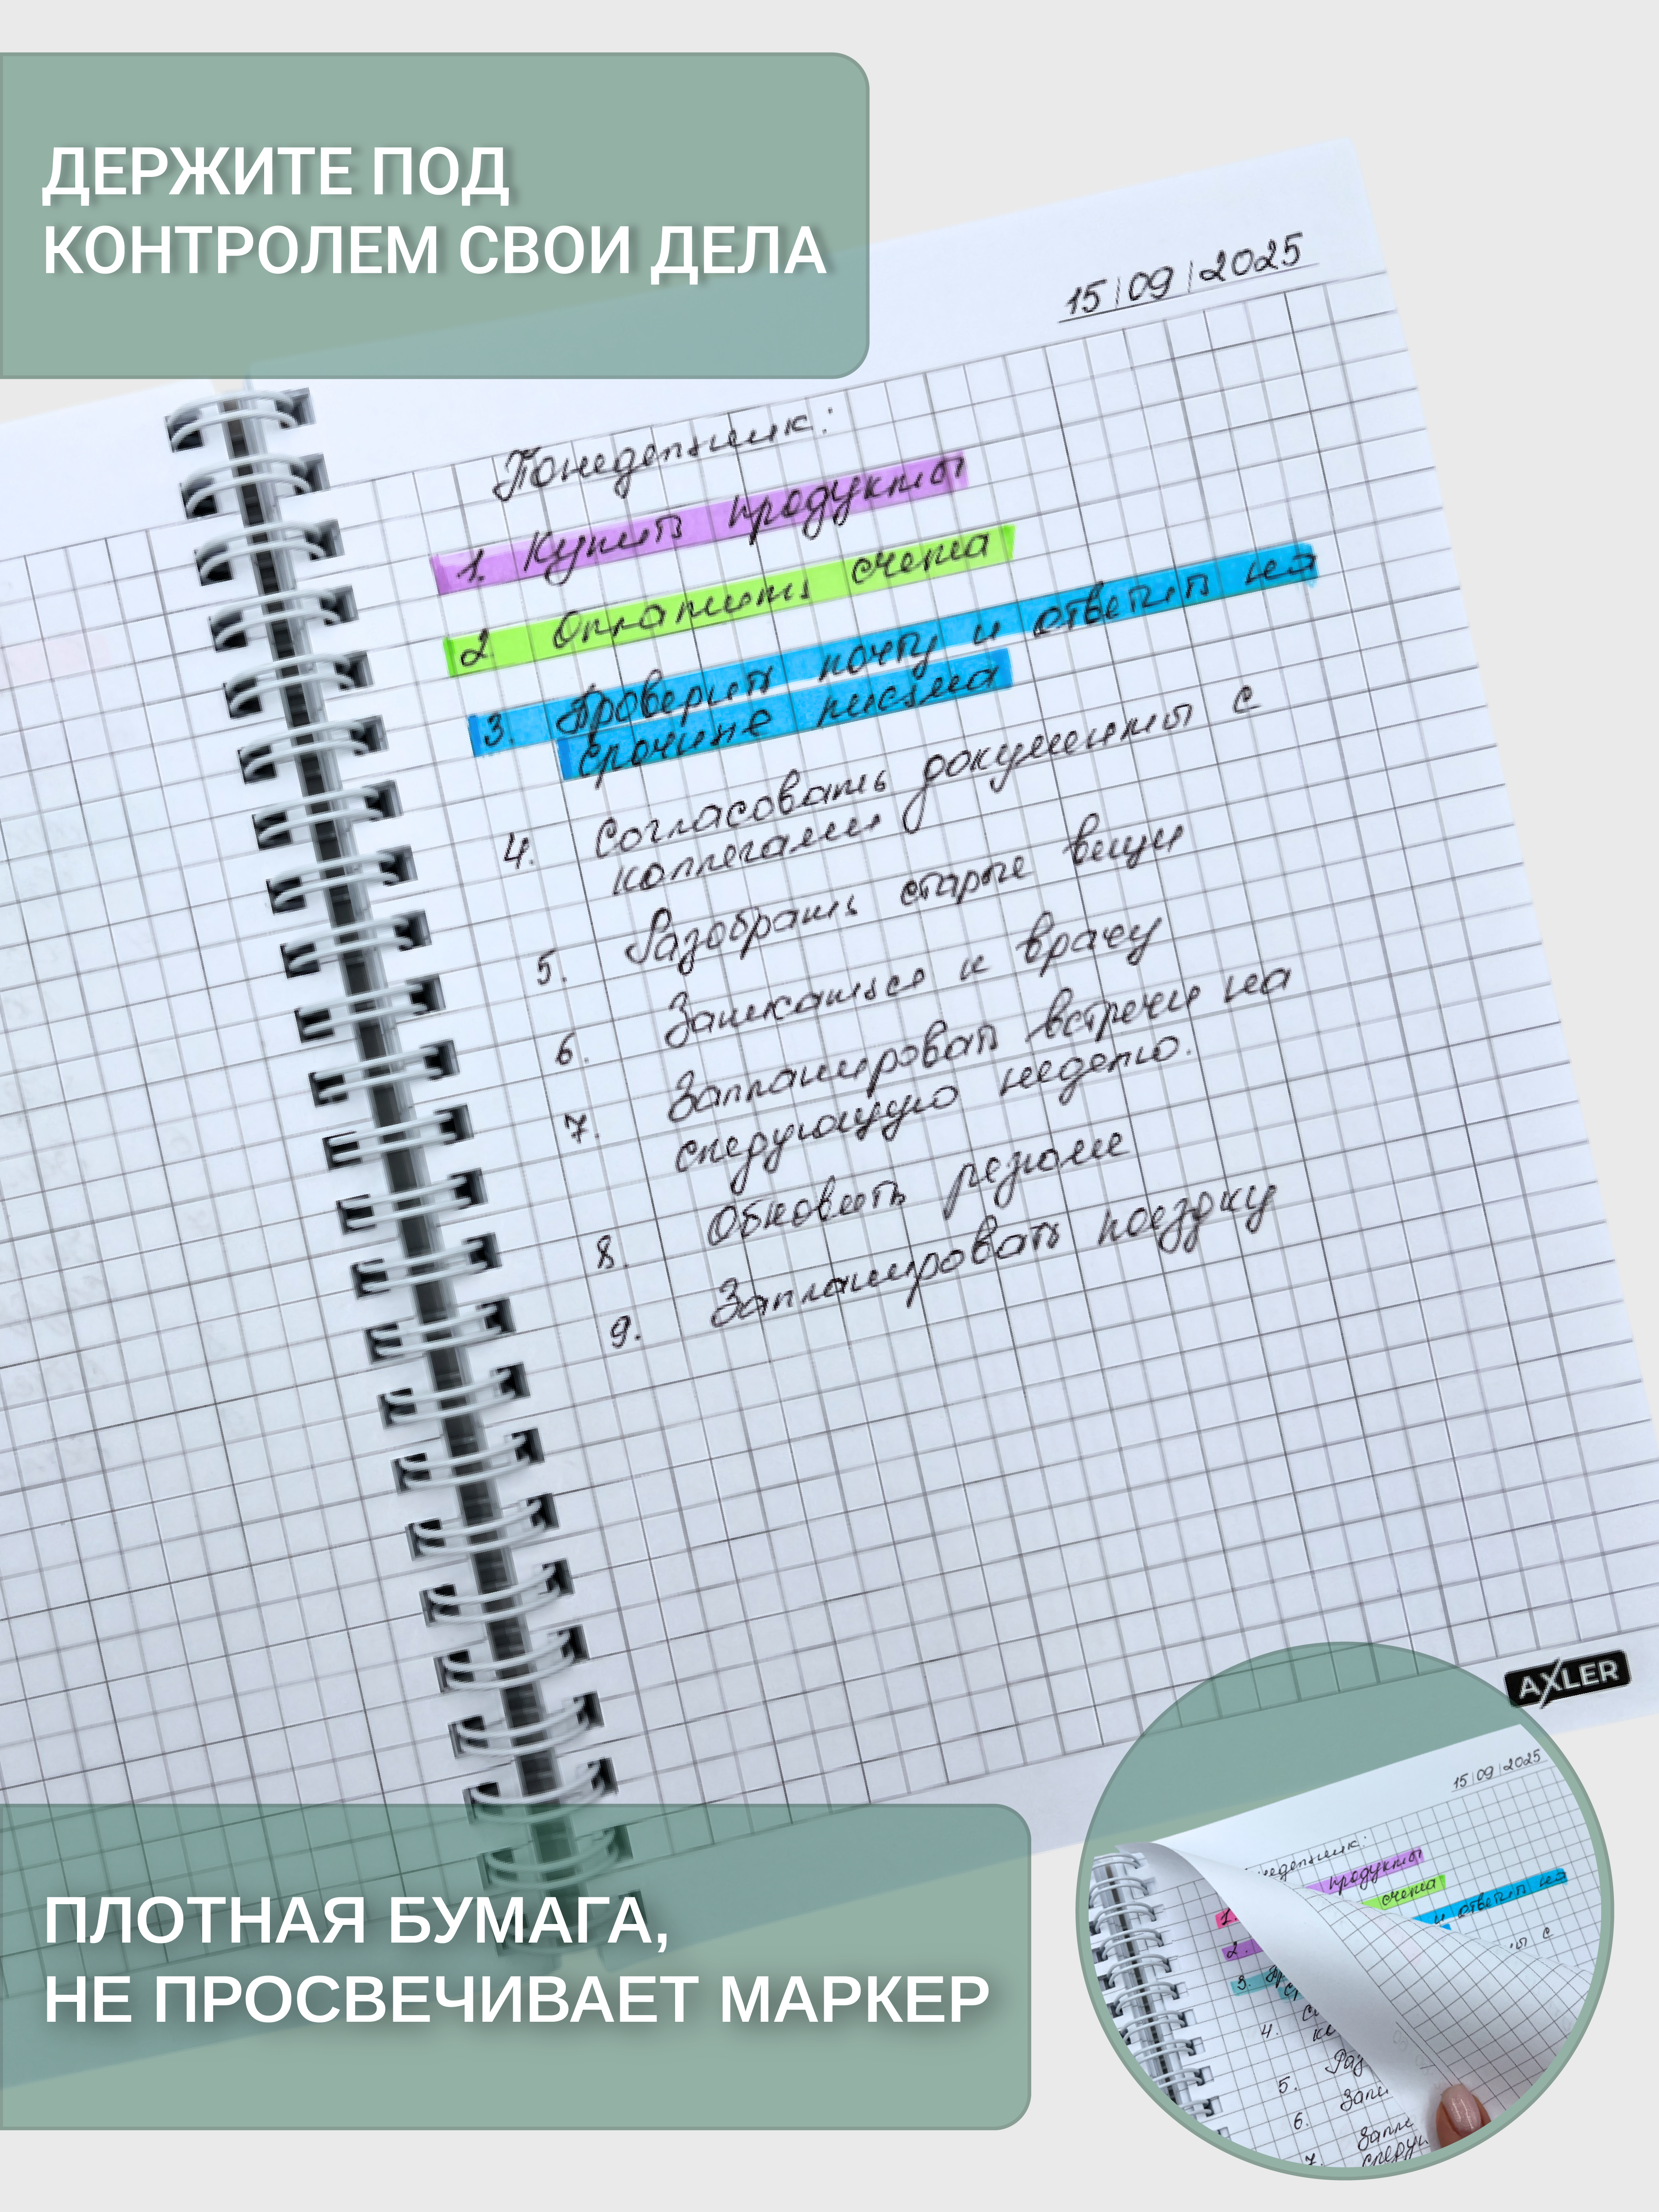 ДЕРЖИТЕ ПОД
КОНТРОЛЕМ СВОИ ДЕЛА
15|09|2025
Понедельник:
1. Купить продукты
2. Оплатить счета
3. Проверить почту и ответить на
срочные письма
4. Согласовать документы с
коллегами
5. Разобрать старые вещи
6. Записаться к врачу
7. Запланировать встречи на
следующую неделю.
8. Обновить резюме
9. Запланировать поездку
AXLER
ПЛОТНАЯ БУМАГА,
НЕ ПРОСВЕЧИВАЕТ МАРКЕР
15|09|2025
недельник:
1. продукты
2. счета
3. и ответить на
4. с
5. Раз
6. Запи
7. Запла
следую